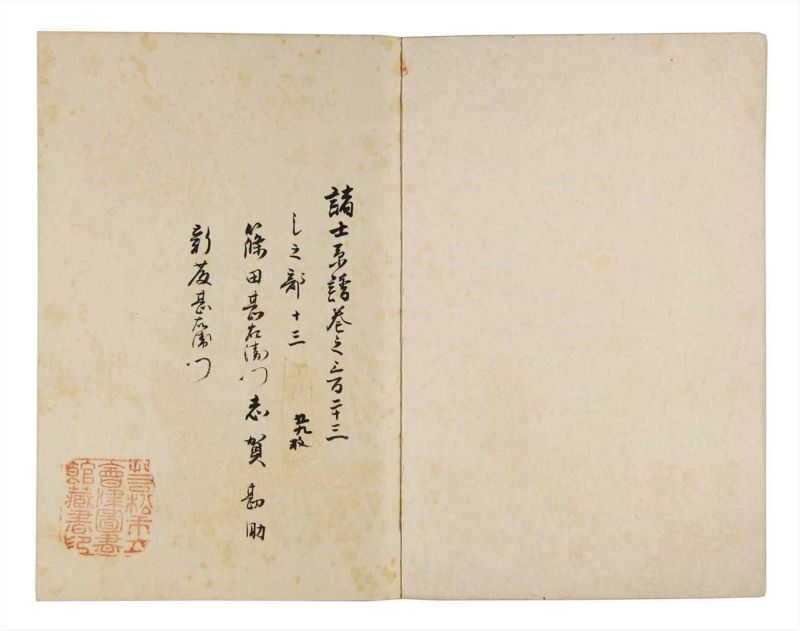 諸士系譜巻之三百二十三
し之部 十三
五九枚
篠田甚右衛門 志賀勘助
新甚右衛門
若松市立
會津圖書
館藏書印